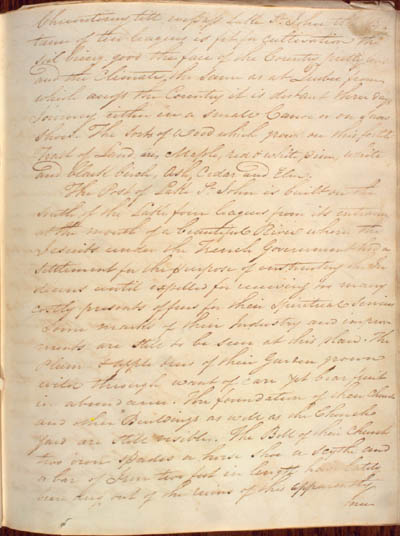 till Lake St. John the
tain of two leagues is fit for cultivation the
soil being good the face of the Country pretty even
and the Climate the same as at Quebec from
which across the Country it is distant three days
Journey either in a small Canoe or on Snow
Shoes. The Sorts of Wood which grow on this fertile
Tract of Land, is, Maple, red & white pine, white
and black birch, Ash, Cedar and Elm.
The Post of Lake St. John is built on the
south of the Lake four leagues from its entrance
at the mouth of a beautiful River where the
Jesuits under the French Government had a
settlement for the purpose of instructing the In
dians until expelled for receiving too many
costly presents offered for their Spiritual Services
Some marks of their Industry and improve
ments are still to be seen at this place. The
Plum & apple trees of their Garden grown
wild through want of care yet bear fruit
in abundance. The foundation of their Church
and other Buildings as well as the Church
yard are still visible. The Bell of their Church
two iron spades a horse shoe a scythe and
a bar of Iron two feet in length have lately
been dug out of the ruins of this apparently